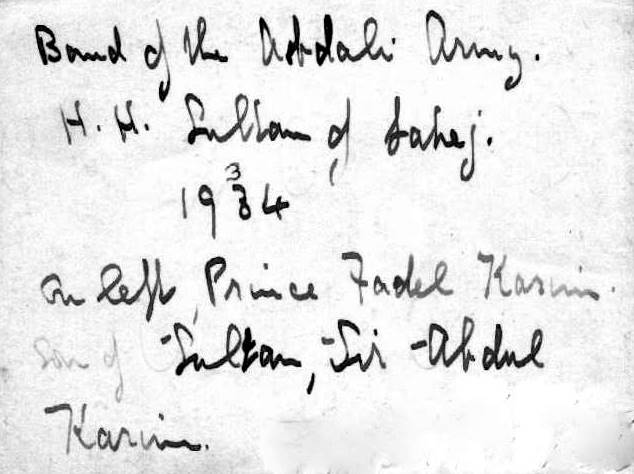 Band of the Abdali Army.
H. H. Sultan of Lahej.
1934
on left, Prince Fadel Karim.
son of Sultan, Sir Abdul
Karim.